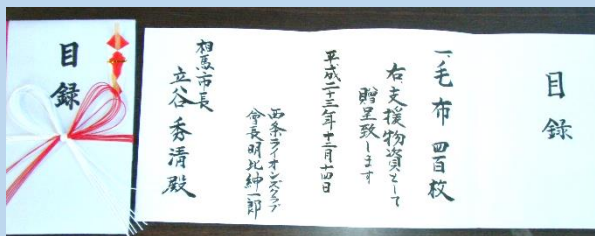 目録
目録
一、毛布 四百枚
右、支援物資として
贈呈致します
平成二十三年十二月十四日
西条ライオンズクラブ
會長明比紳一郎
相馬市長
立谷秀清殿